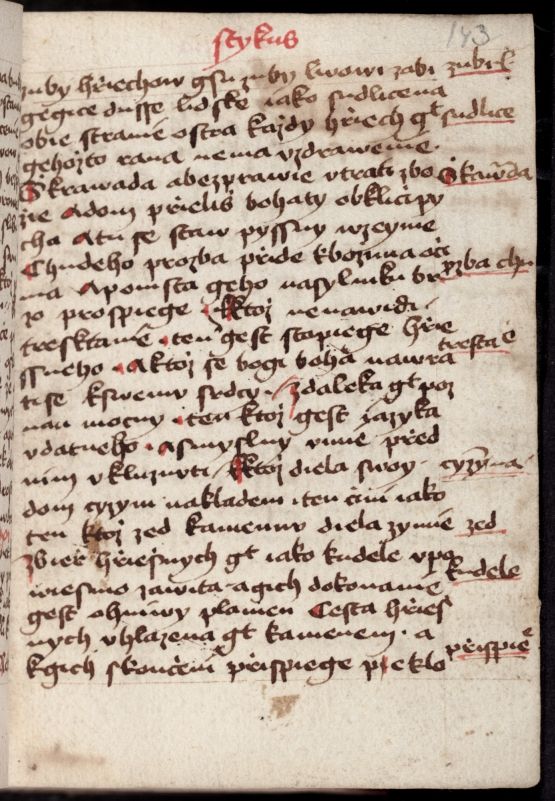 stykus
143
zuby hřiechow gsu zuby lwowi zabi zubi
gegice dusse lidske iako sudlice na
obie straně ostra každy hřiech gt sudlice
gehožto rana nema vzdrawenie
Skrawada a bezprawie vtrati zbo Skawada
žie A dom přieliš bohaty obkliči py
cha A tu se staw pyssny wzeyme
Chudeho prozba přide k bozi na oči
ma A pomsta geho nasylniku br prozba chu
zo prospiege Ktoz nenawidi
tresktanie ten gest stapiege hřie
ssneho A ktoz se bogi boha nawra tresta
ti se k swemu srdcy zdaleka gt poz
nan mocny ten ktoz gest iazyka
vdatneho A smyslny vmie před
nim vkluznuti Ktoz diela swoy cyzyma
dom cyzym nakladem ten cini iako
ten ktoz zed kamennu diela zymie zed
Zbier hřiesnych gt iako kudele vpo
wiesmo zawita a gich dokonanie kudele
gest ohniwy plamen Cesta hřieš
nych vhlazena gt kamenem a
k gich skončeni přispiege peklo přispie